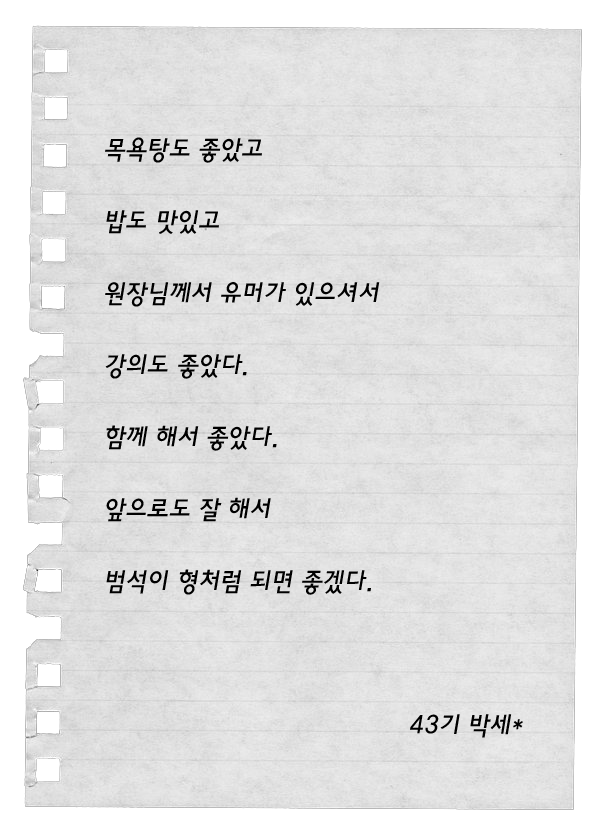 목욕탕도 좋았고
밥도 맛있고
원장님께서 유머가 있으셔서
강의도 좋았다.
함께 해서 좋았다.
앞으로도 잘 해서
범석이 형처럼 되면 좋겠다.
43기 박세*